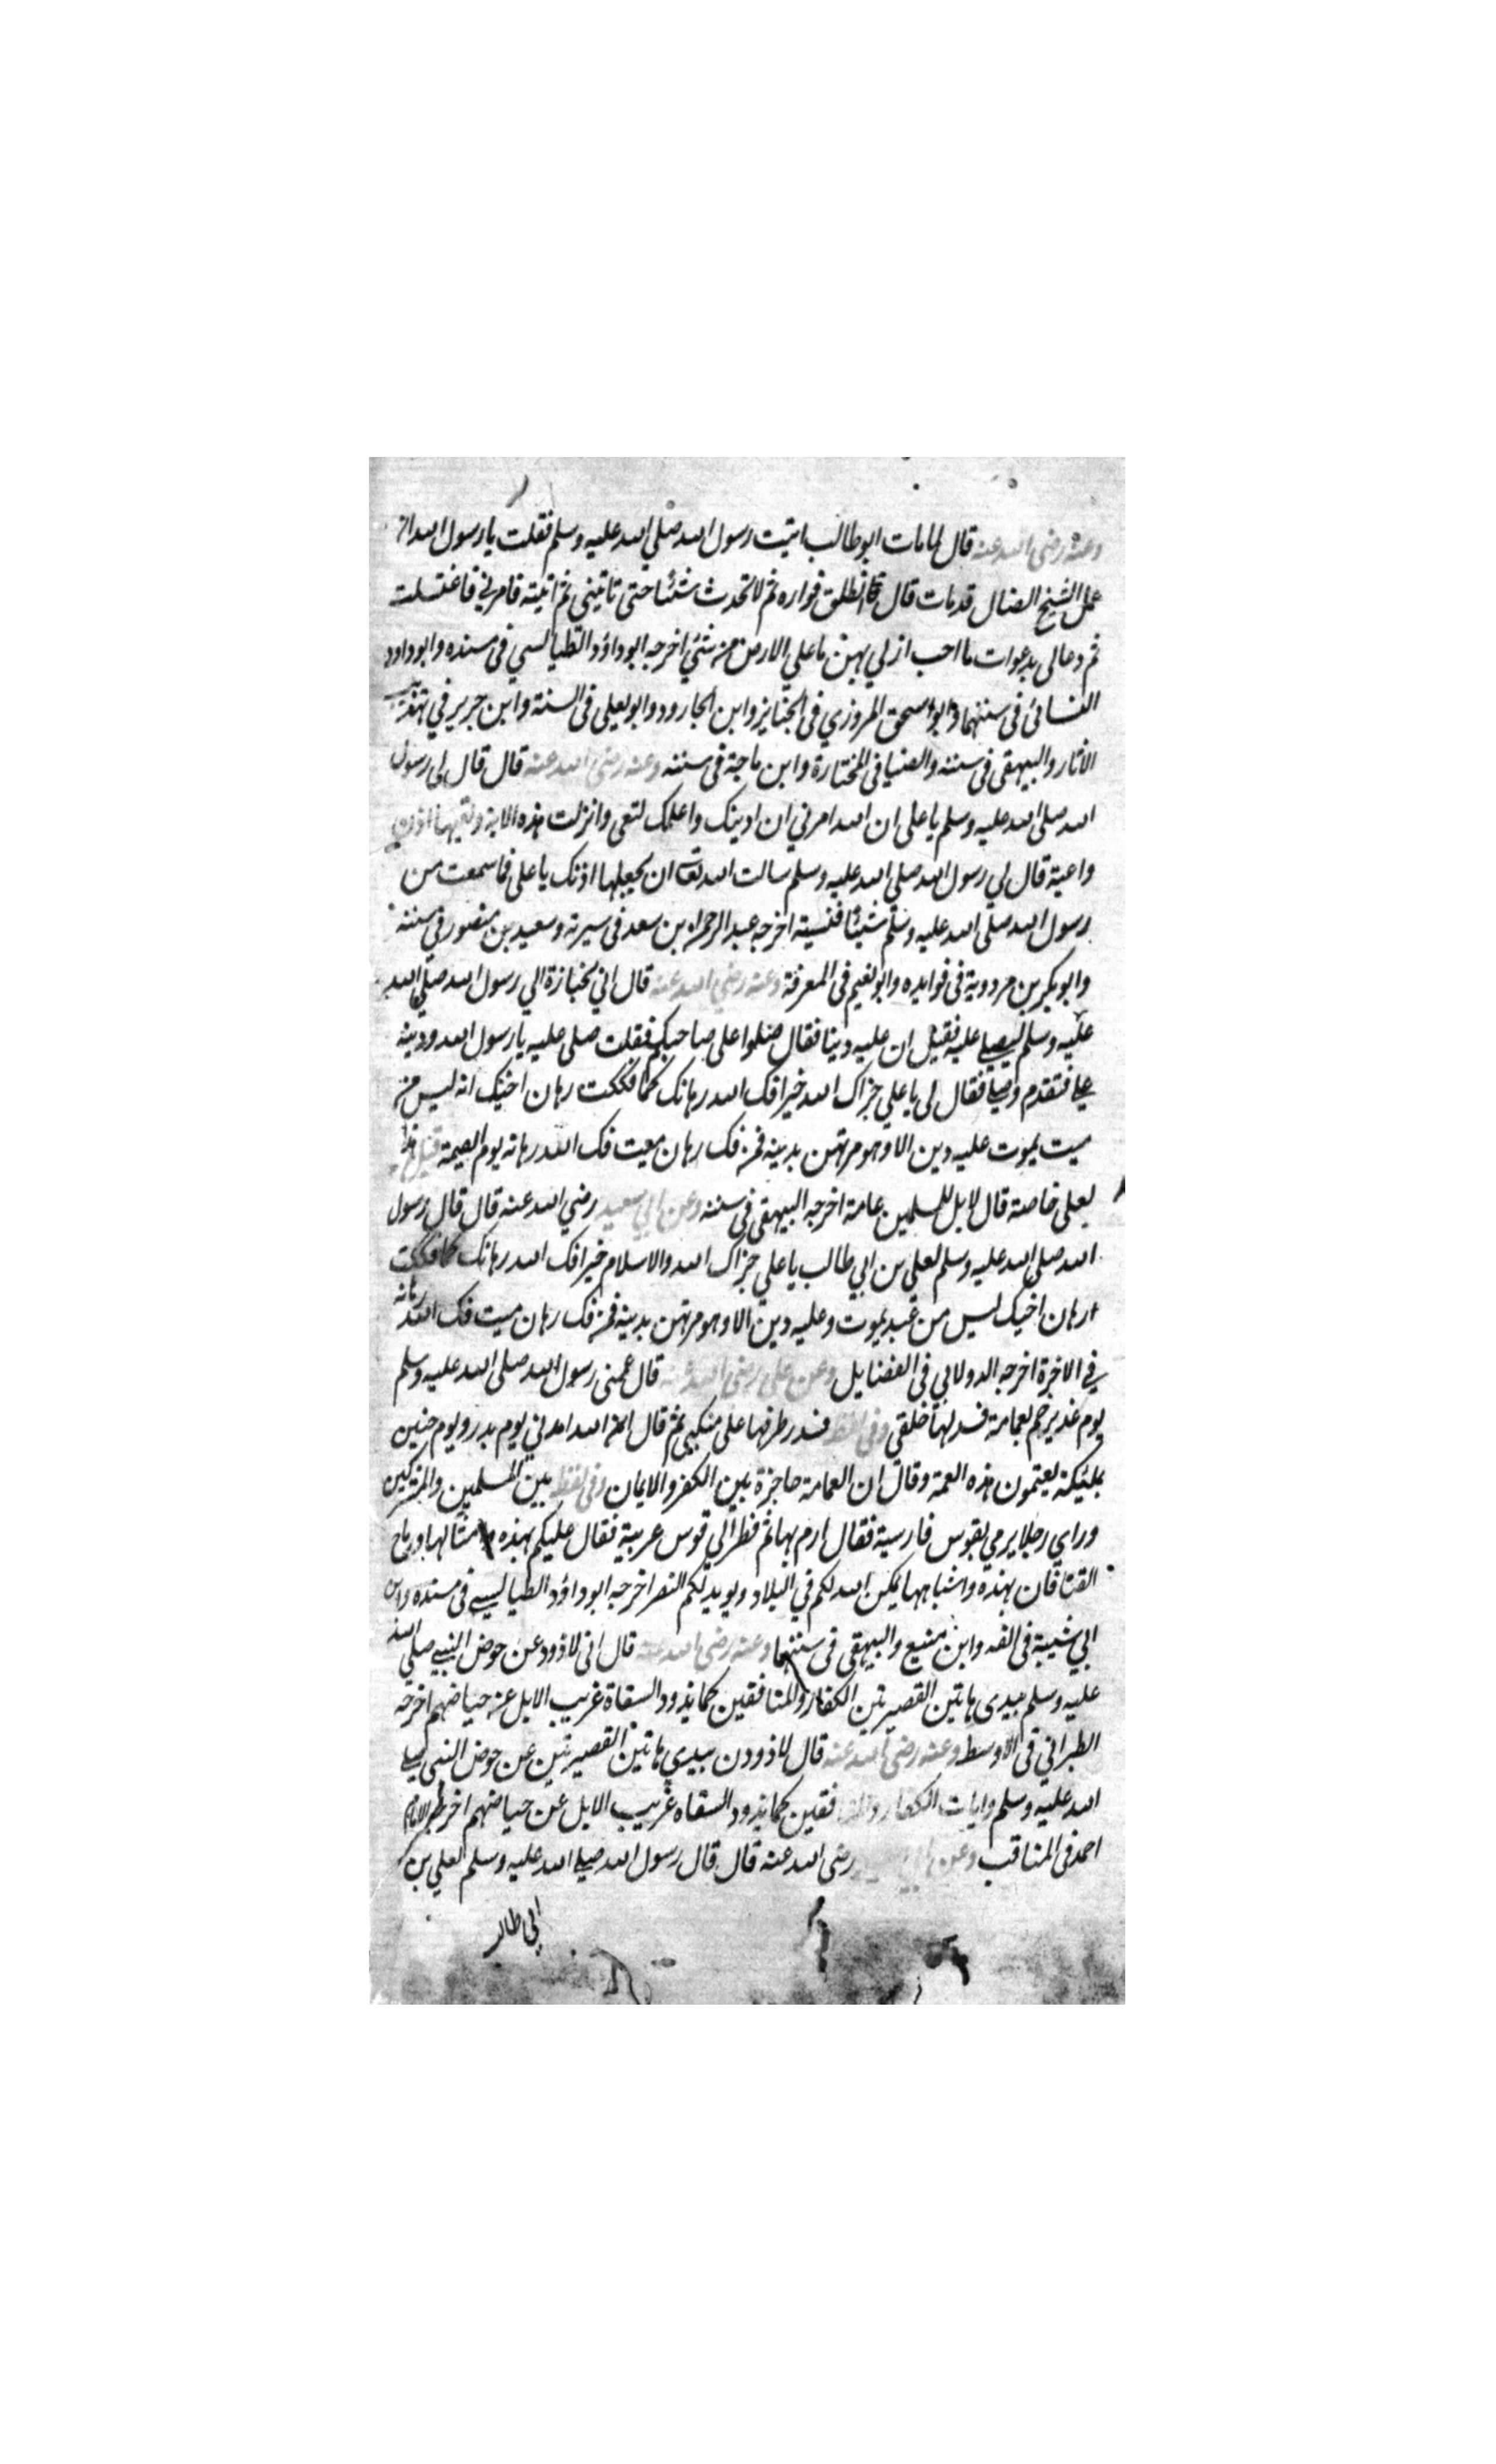 وعنه رضي الله عنه قال لما مات ابو طالب اتيت رسول الله صلي الله عليه وسلم فقلت يا رسول الله ان
عمك الشيخ الضال قد مات قال فانطلق فواره ثم لا تحدث شيئا حتى تاتيني ثم اتيته فامرني فاغتسلت
ثم دعا لي بدعوات ما احب ان لي بهن ما علي الارض من شئ اخرجه ابو داؤد الطيالسي في مسنده وابو داود
النسائي في سننهما وابو اسحق المروزي في الجنايز وابن الجارود وابو يعلي في السنة وابن جرير في تهذيب
الاثار والبيهقي في سننه والضيا في المختارة وابن ماجة في سننه وعنه رضي الله عنه قال قال لي رسول
الله صلي الله عليه وسلم يا علي ان الله امرني ان ادينك واعلمك لتعي وانزلت هذه الاية وتعيها اذن
واعية قال لي رسول الله صلي الله عليه وسلم سالت الله تعا ان يجعلها اذنك يا علي فما سمعت من
رسول الله صلي الله عليه وسلم شيئا فنسيته اخرجه عبد الرحمن بن سعد في سيرته وسعيد بن منصور في سننه
وابو بكر بن مردوية في فوايده وابو نعيم في المعرفة وعنه رضي الله عنه قال اتي بجنازة الي رسول الله صلي الله
عليه وسلم ليصلي عليه فقيل ان عليه دينا فقال صلوا علي صاحبكم فقلت صلي عليه يا رسول الله ودينه
علي فتقدم وصلي فقال لي يا علي جزاك الله خيرا فك الله رهانك كما فككت رهان اخيك انه ليس من
ميت يموت عليه دين الا وهو مرتهن بدينه فمن فك رهان ميت فك الله رهانه يوم القيمة قيل هذا
لعلي خاصة قال لا بل للمسلمين عامة اخرجه البيهقي في سننه وعن ابي سعيد رضي الله عنه قال قال رسول
الله صلي الله عليه وسلم لعلي بن ابي طالب يا علي جزاك الله والاسلام خيرا فك الله رهانك كما فككت
رهان اخيك ليس من عبد يموت وعليه دين الا وهو مرتهن بدينه فمن فك رهان ميت فك الله رهانه
في الاخرة اخرجه الدولابي في الفضايل وعن علي رضي الله عنه قال عممني رسول الله صلي الله عليه وسلم
يوم غدير خم بعمامة فسدلها خلفي وفي لفظ فسدر طرفها علي منكبي ثم قال ان الله امدني يوم بدر ويوم حنين
بملئيكة يعتمون هذه العمة وقال ان العمامة حاجزة بين الكفر والايمان وفي لفظ بين المسلمين والمشركين
وراي رجلا يرمي بقوس فارسية فقال ارم بها ثم نظر الي قوس عربية فقال عليكم بهذه وامثالها ورماح
القنا فان بهذه واشباهها يمكن الله لكم في البلاد ويويد لكم النصر اخرجه ابو داؤد الطيالسي في مسنده وابن
ابي شيبة في الفه وابن منيع والبيهقي في سننهما وعنه رضي الله عنه قال اني لاذود عن حوض النبي صلي الله
عليه وسلم بيدي هاتين القصيرتين الكفار والمنافقين كما يذود السقاة غريب الابل عن حياضهم اخرجه
الطبراني في الاوسط وعنه رضي الله عنه قال لاذودن بيدي هاتين القصيرتين عن حوض النبي صلي
الله عليه وسلم رايات الكفار والمنافقين كما يذود السقاه غريب الابل عن حياضهم اخرجه الامام
احمد في المناقب وعن ابي رضي الله عنه قال قال رسول الله صلي الله عليه وسلم لعلي بن
ابي طالب